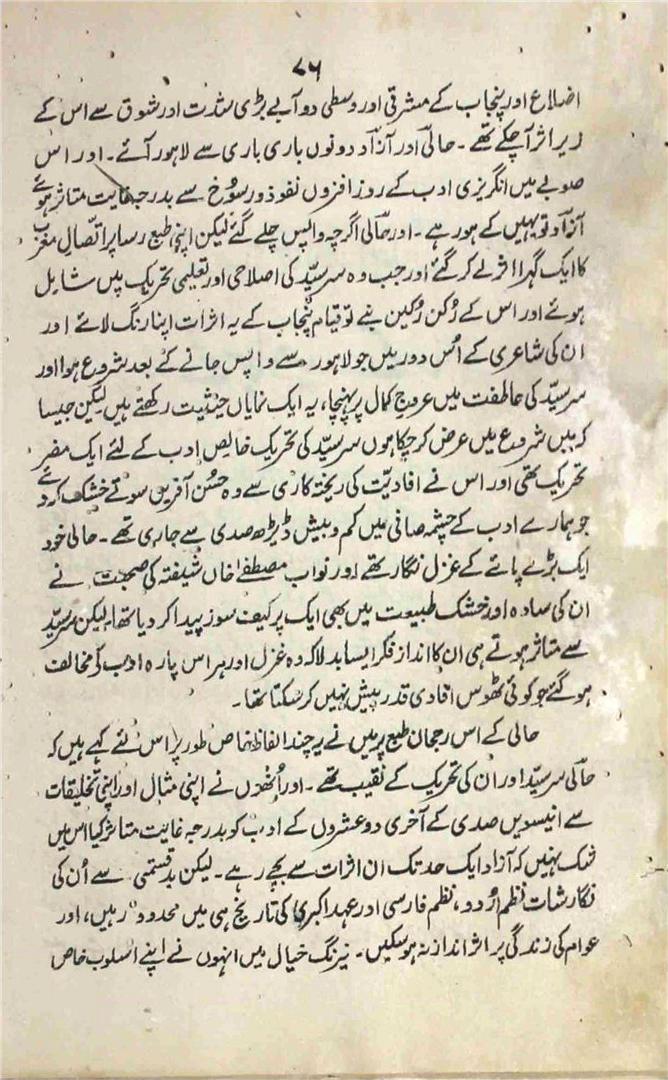 ۷۶
اضلاع اور پنجاب کے مشرقی اور وسطی دوآبے بڑی شدت اور شوق سے اس کے
زیر اثر آ چکے تھے ۔ حالیؔ اور آزادؔ دونوں باری باری سے لاہور آئے ۔ اور اس
صوبے میں انگریزی ادب کے روز افزوں نفوذ و رسوخ سے بدرجہ غایت متاثر ہوئے
آزادؔ تو یہیں کے ہو رہے ۔ اور حالیؔ اگرچہ واپس چلے گئے لیکن اپنی طبع رسا پر اتصالِ مغرب
کا ایک گہرا اثر لے کر گئے اور جب وہ سرسیدؔ کی اصلاحی اور تعلیمی تحریک میں شامل
ہوئے اور اس کے رُکن رُکین بنے تو قیام پنجاب کے یہ اثرات اپنا رنگ لائے اور
ان کی شاعری کے اُس دور میں جو لاہور سے واپس جانے کے بعد شروع ہوا اور
سرسیدؔ کی عاطفت میں عروجِ کمال پر پہنچا، یہ ایک نمایاں حیثیت رکھتے ہیں لیکن جیسا
کہ میں شروع میں عرض کر چکا ہوں سرسیدؔ کی تحریک خالص ادب کے لئے ایک مضر
تحریک تھی اور اس نے افادیت کی ریختہ کاری سے وہ حُسن آفریں سوتے خشک کر دئے
جو ہمارے ادب کے چشمہ صافی میں کم و بیش ڈیڑھ صدی سے جاری تھے ۔ حالی خود
ایک بڑے پائے کے غزل نگار تھے اور نواب مصطفےٰ خاں شیفتہ کی صحبت نے
ان کی سادہ اور خشک طبیعت میں بھی ایک پرکیف سوز پیدا کر دیا تھا، لیکن سرسیدؔ
سے متاثر ہوتے ہی ان کا انداز فکر ایسا بدلا کہ وہ غزل اور ہر اس پارہ ادب کے مخالف
ہو گئے جو کوئی ٹھوس افادی قدر پیش نہیں کر سکتا تھا ۔
حالی کے اس رجحان طبع پر میں نے یہ چند الفاظ خاص طور پر اس لئے کہے ہیں کہ
حالیؔ سرسیدؔ اور اُن کی تحریک کے نقیب تھے ۔ اور اُنھوں نے اپنی مثال اور اپنی تخلیقات
سے انیسویں صدی کے آخری دو عشروں کے ادب کو بدرجہ غایت متاثر کیا اس میں
شک نہیں کہ آزاد ایک حد تک ان اثرات سے بچے رہے ۔ لیکن بدقسمتی سے اُن کی
نگارشات نظم اُردو، نظم فارسی اور عہد اکبری کی تاریخ ہی میں محدود رہیں، اور
عوام کی زندگی پر اثر انداز نہ ہو سکیں ۔ نیرنگ خیال میں انہوں نے اپنے اسلوب خاص